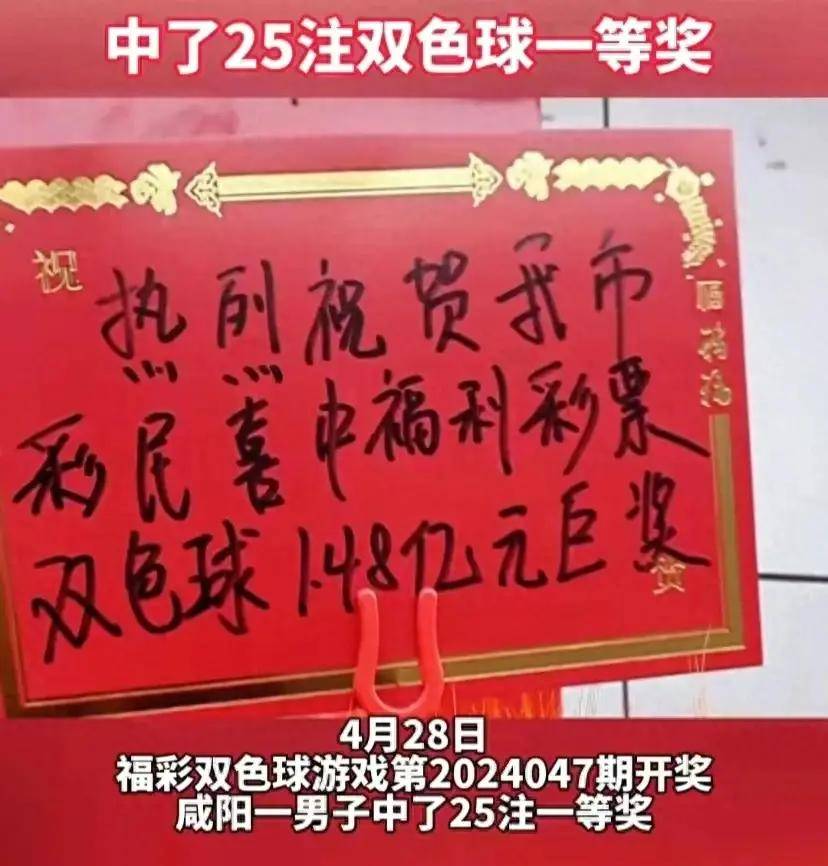 中了25注双色球一等奖
祝
热烈祝贺我市
彩民喜中福利彩票
双色球1.48亿元巨奖
贺
4月28日
福彩双色球游戏第2024047期开奖
咸阳一男子中了25注一等奖